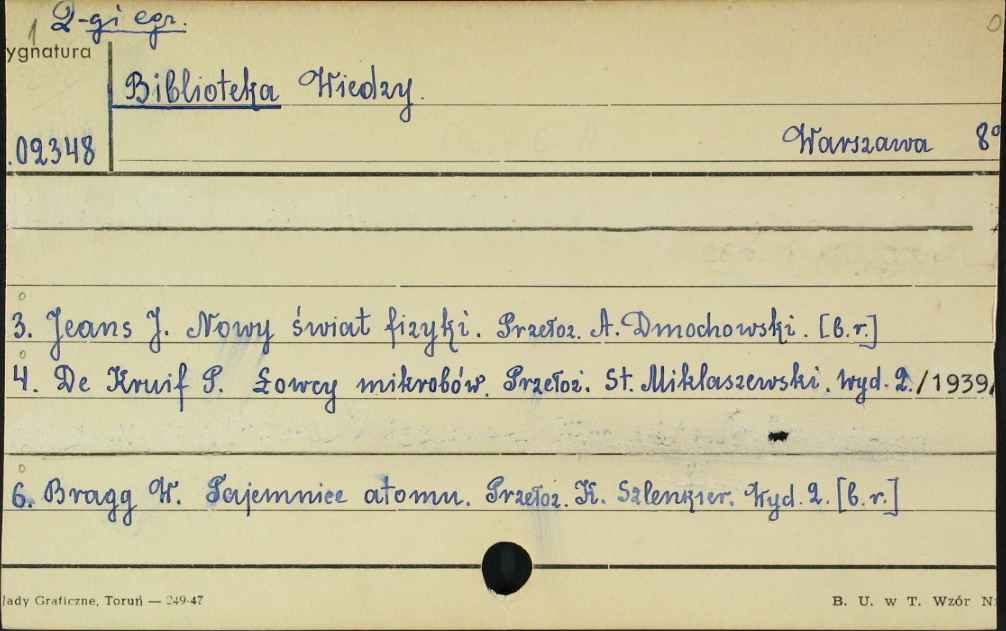 2-gi egz.
ygnatura
Biblioteka Wiedzy.
.02348
Warszawa 8°
3. Jeans J. Nowy świat fizyki. Przełoż. A. Dmochowski. [b.r.]
4. De Kruif P. Łowcy mikrobów. Przełoż. St. Mikłaszewski. Wyd. 2./1939/
6. Bragg W. Tajemnice atomu. Przełoż. K. Szlenkier. Wyd. 2. [b.r.]
łady Graficzne, Toruń — 249-47
B. U. w T. Wzór N